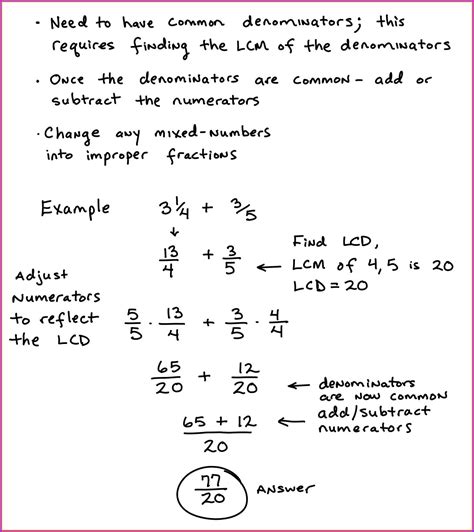 · Need to have common denominators; this
requires finding the LCM of the denominators
· Once the denominators are common - add or
subtract the numerators
· Change any mixed-numbers
into improper fractions
Example 3 1/4 + 3/5
↓
13/4 + 3/5 ← Find LCD,
LCM of 4,5 is 20
LCD = 20
Adjust
Numerators
to reflect
the LCD
5/5 · 13/4 + 3/5 · 4/4
65/20 + 12/20 ← denominators
are now common
65 + 12/20 ← add/subtract
numerators
77/20 Answer